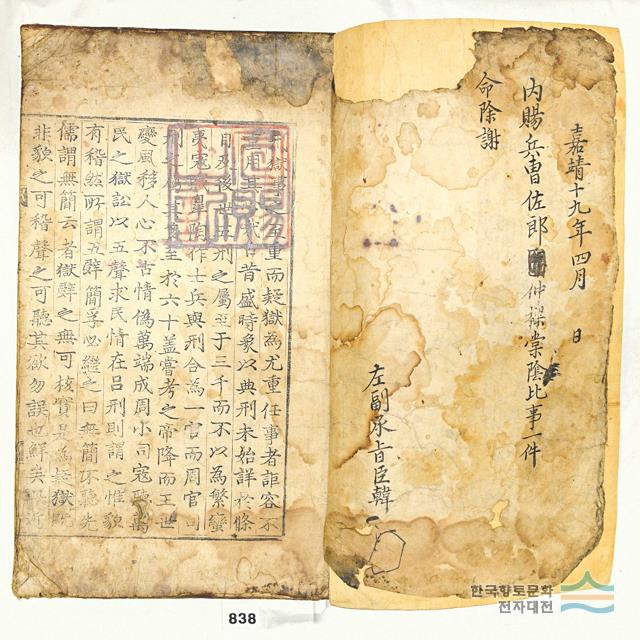 嘉靖十九年四月 日
內賜兵曹佐郎 仲 棠陰比事一件
命除謝
左副承旨臣韓
獄事之 重而疑獄爲尤重任事者詎容不
昔盛時象以典刑未始詳於條
自 後世 刑之屬至于三千而不以爲繁蠻
夷寇 皐陶作士兵與刑合爲一官而周官司
刑 至於六十盖嘗考之帝降而王世
變風移人心不古情僞萬端成周小司寇聽萬
民之獄訟以五聲求民情在呂刑則謂之惟貌
有稽然所謂五辭簡孚必繼之曰無簡不聽先
儒謂無簡云者獄辭之無可核實是爲疑獄
非貌之可稽聲之可聽其欲勿誤也鮮矣 近
838
한국향토문화
전자대전